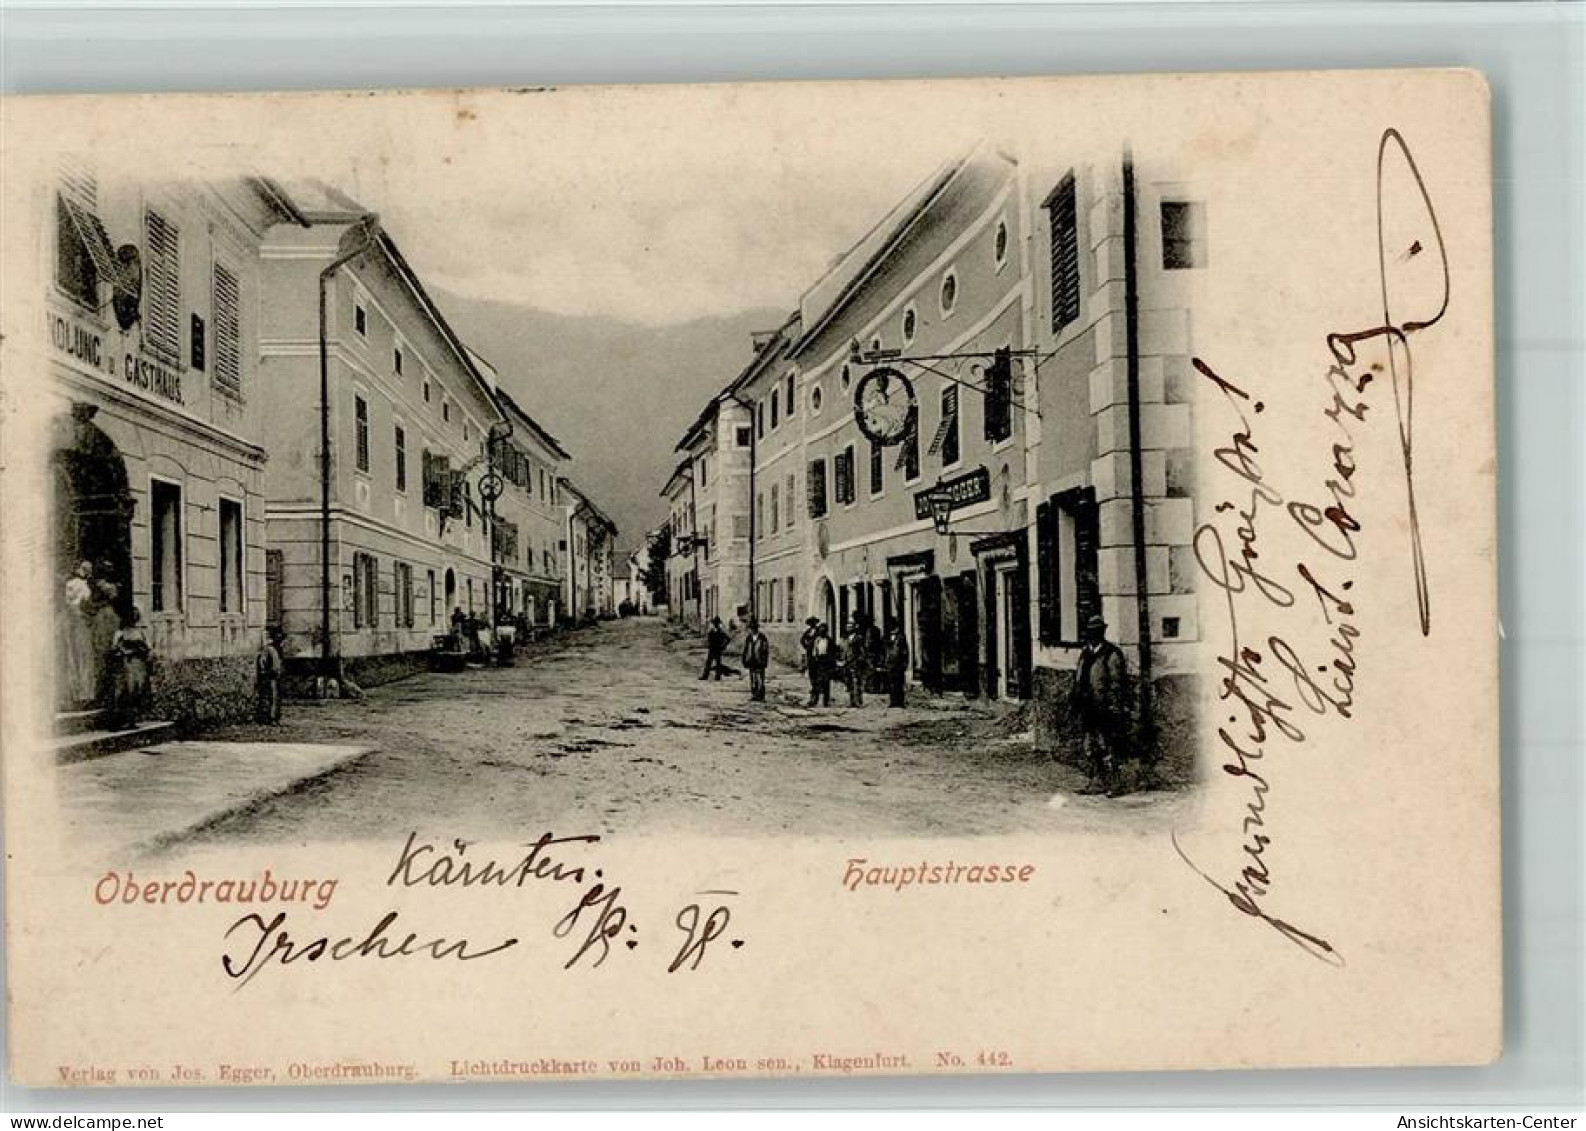 NDLUNG u GASTHAUS.
EGGER
Oberdrauburg
Kärnten.
Hauptstrasse
Irschen
Freundlichste Grüße!
Lieut. Corazza
Verlag von Jos. Egger, Oberdrauburg. Lichtdruckkarte von Joh. Leon sen., Klagenfurt. No. 442.
delcampe.net
Ansichtskarten-Center